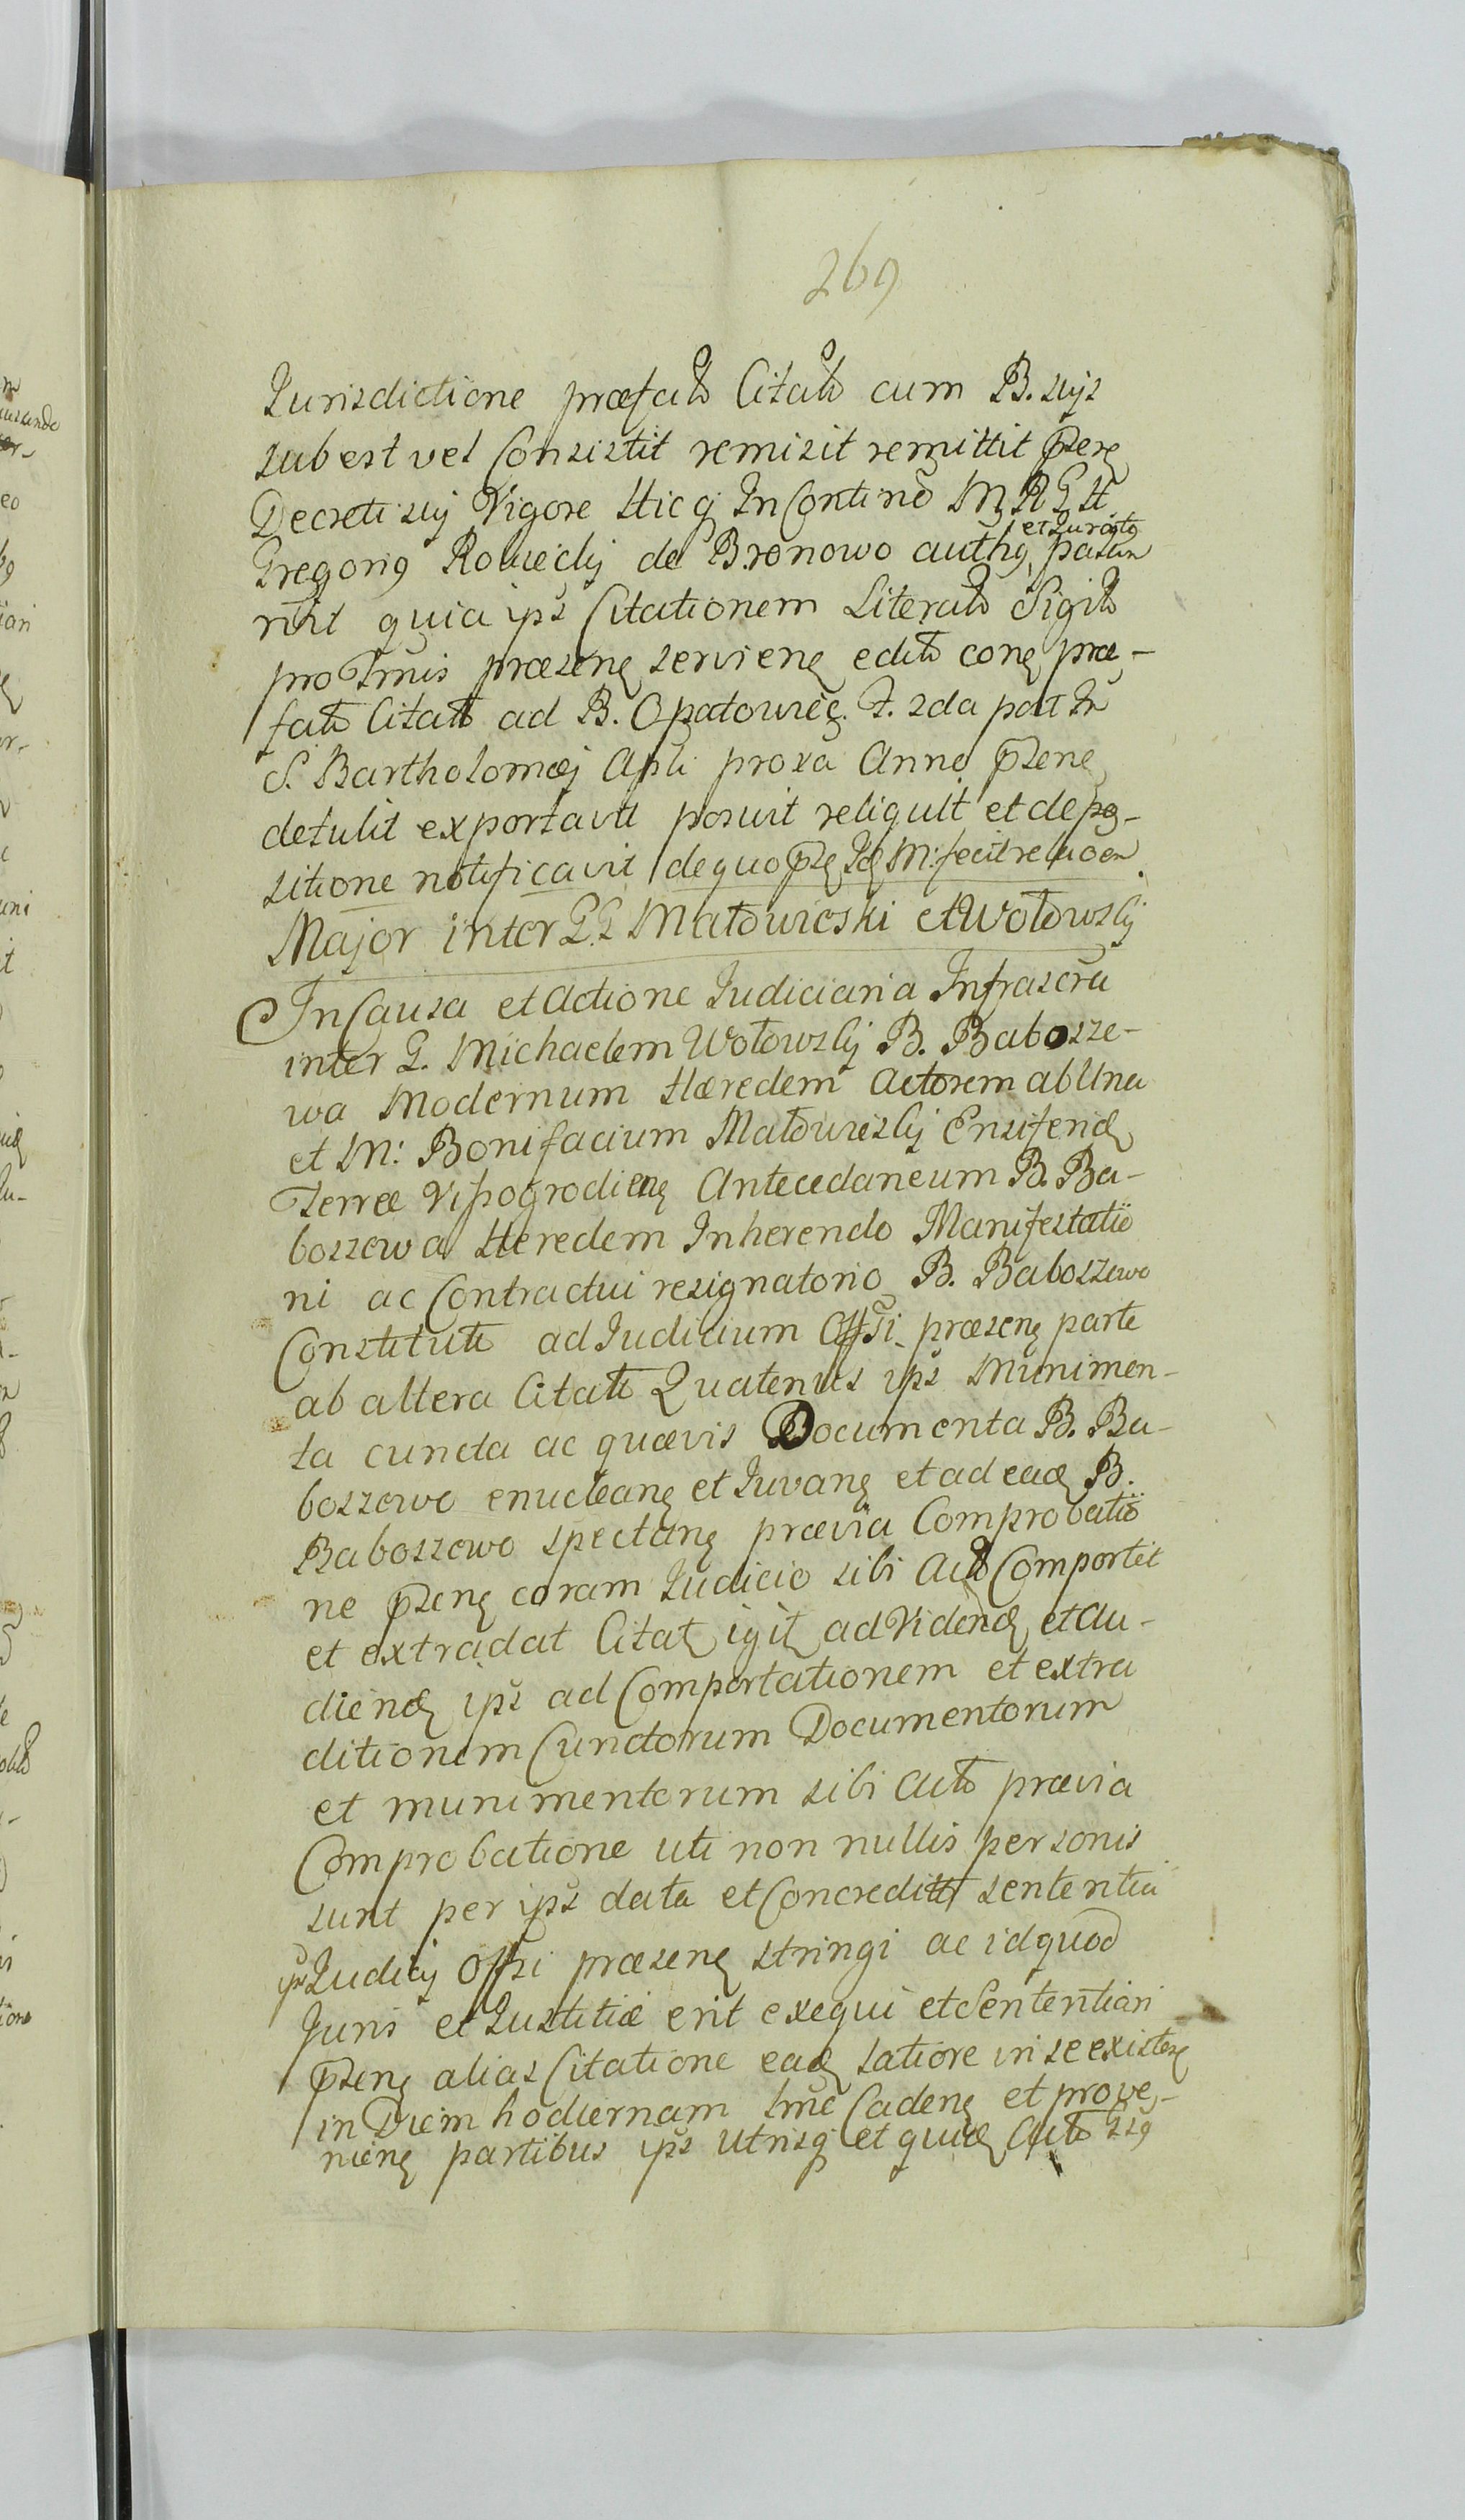 269
Jurisdictione præfato Citato cum B. suis
subest vel Consistit remisit remittit pñs
Decreti sui Vigore Hicq InContinō M R G H
et Jurato
Gregorig Rowieckj de Bronowo authg palam
rūit quia ips Citationem Literato Sigilo
pro Tmis præsenę servienę edito conę præ-
fato Citato ad B. Opatowieę. F. 2da post In
S. Bartholomæj Apli proxa Anno pñsenę
detulit exportavit posuit reliquit et depo-
sitione notificavit de quo pñs Idę M: fecit reluoem.
Major inter G.G Małowieski et Wołowskj
In Causa et Actione Judiciaria Infrascra
inter G. Michaelem Wołowskj B. Babosze-
wa Modernum Hæredem Actorem ab Una
et M: Bonifacium Małowieskj Ensiferūę
Terræ Vissogrodienę Antecedaneum B. Ba-
boszewa Heredem Inherendo Manifestatio
ni ac Contractui resignatorio B. Baboszewo
Constituti ad Judicium Offi præsenę parte
ab altera Citati Quatenus ips Munimen-
ta cuncta ac quævis Documenta B. Ba-
boszewo enucleanę et Juvanę et ad eadę B.
Baboszewo spectanę prævia Comprobatio
ne pñsenę coram Judicio sibi Acto Comportet
et extradat Citatę igitę ad Videndę et Au-
diendę ips ad Comportationem et extra
ditionem Cunctorum Documentorum
et munimentorum sibi Acto prævia
Comprobatione uti non nullis personis
sunt per ips data et Concredita sententia
ips Judicij Offi præsenę stringi ac id quod
Juris et Justitiæ erit exequi et Sententiari
pñsenę alias Citatione eadę latiore in se existenę
in Diem hodiernam Tmē Cadenę et prove-
nienę partibus ips Utrisq et quidę Acto